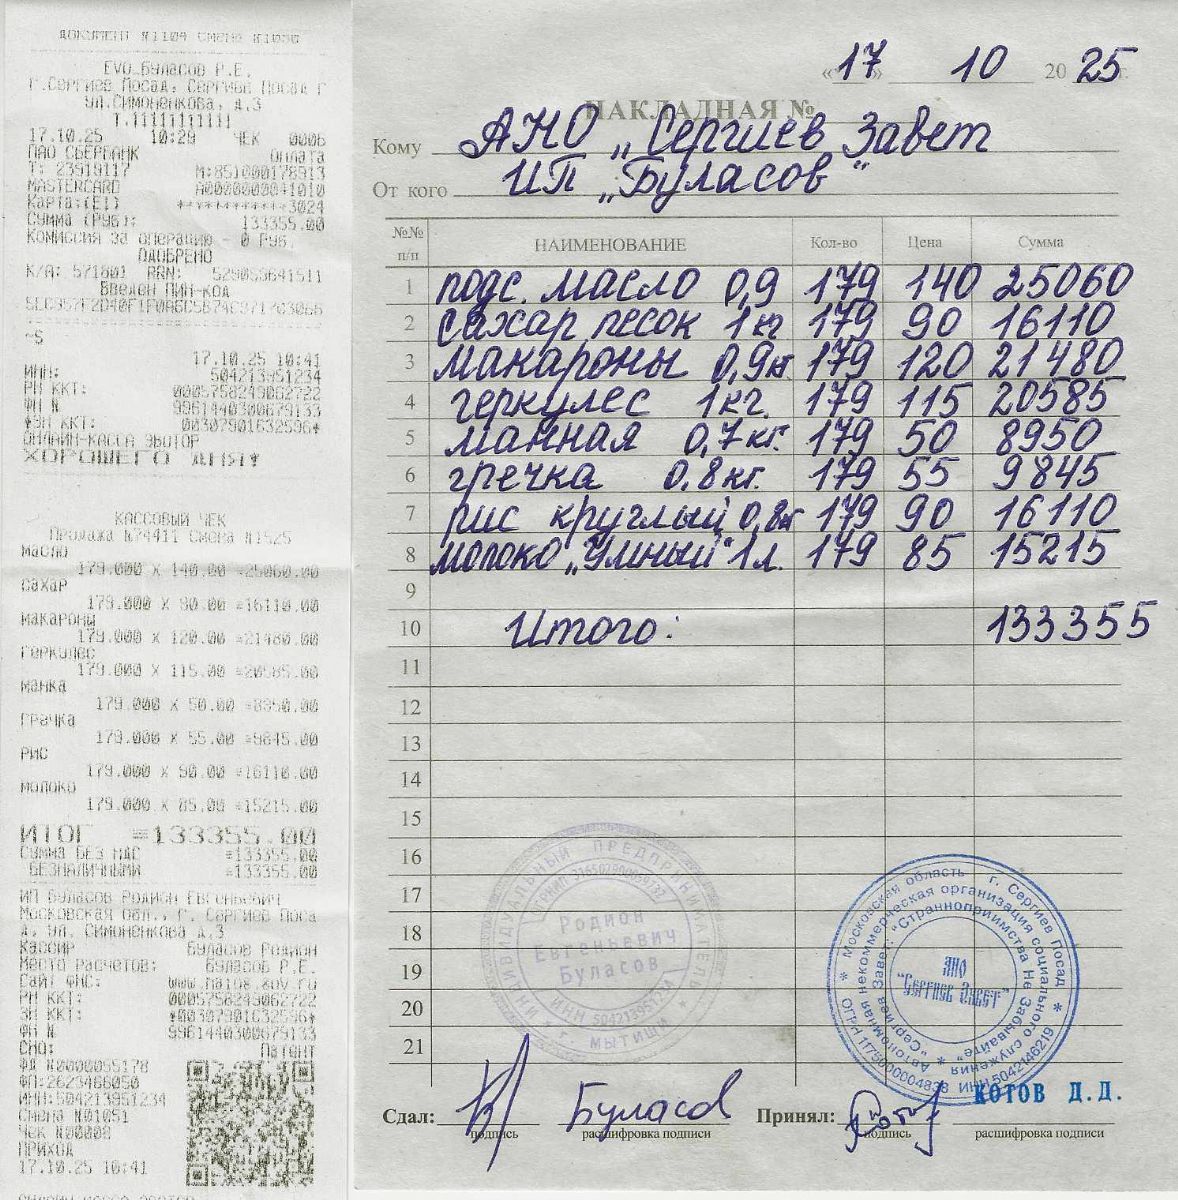 ДОКУМЕНТ №1104 СМЕНА №1050
EVO_БУЛАСОВ Р.Е.
Г.СЕРГИЕВ ПОСАД, СЕРГИЕВ ПОСАД Г
УЛ.СИМОНЕНКОВА, Д.3
Т.11111111111
17.10.25 10:29 ЧЕК 0006
ПАО СБЕРБАНК Оплата
Т: 23519117 М:851000178913
MASTERCARD A0000000041010
Карта:(E1) ************3024
Сумма (Руб): 133355.00
Комиссия за операцию - 0 Руб.
ОДОБРЕНО
К/А: 571801 RRN: 529053641511
Введен ПИН-код
~S
17.10.25 10:41
ИНН: 504213951234
РН ККТ: 0005758249062722
ФН № 9961440300679133
ЗН ККТ: 00307901632596
ОНЛАЙН-КАССА ЭВОТОР
ХОРОШЕГО ДНЯ!
КАССОВЫЙ ЧЕК
Продажа №74411 Смена №1525
масло
179.000 X 140.00 =25060.00
сахар
179.000 X 90.00 =16110.00
макароны
179.000 X 120.00 =21480.00
геркулес
179.000 X 115.00 =20585.00
манка
179.000 X 50.00 =8950.00
грачка
179.000 X 55.00 =9845.00
рис
179.000 X 90.00 =16110.00
молоко
179.000 X 85.00 =15215.00
ИТОГ =133355.00
СУММА БЕЗ НДС =133355.00
БЕЗНАЛИЧНЫМИ =133355.00
ИП Буласов Родион Евгеньевич
Московская обл., г. Сергиев Поса
д, ул. Симоненкова д.3
Кассир Буласов Родион
Место расчетов: Буласов Р.Е.
Сайт ФНС: www.nalog.gov.ru
РН ККТ: 0005758249062722
ЗН ККТ: 00307901632596
ФН № 9961440300679133
СНО: Патент
ФД №0000055178
ФП:2623466050
ИНН:504213951234
Смена №01051
Чек №00008
ПРИХОД
17.10.25 10:41
«17» 10 2025 г.
НАКЛАДНАЯ №
Кому АНО „Сергиев Завет
От кого ИП „Буласов“
№№ п/п НАИМЕНОВАНИЕ Кол-во Цена Сумма
1 подс. масло 0,9 179 140 25060
2 сахар песок 1кг 179 90 16110
3 макароны 0,9кг. 179 120 21480
4 геркулес 1кг. 179 115 20585
5 манная 0,7кг. 179 50 8950
6 гречка 0.8кг. 179 55 9845
7 рис круглый 0,8кг 179 90 16110
8 молоко „Умный“ 1л. 179 85 15215
9
10 Итого: 133355
11
12
13
14
15
16
17
18
19
20
21
ИНДИВИДУАЛЬНЫЙ ПРЕДПРИНИМАТЕЛЬ
Родион
Евгеньевич
Буласов
ИНН 504213951234
г. МЫТИЩИ
Московская область г. Сергиев Посад
Автономная некоммерческая организация социального служения
"Сергиев Завет: "Странноприимства Не Забывайте"
ОГРН 1175000004838 ИНН 5042146219
АНО
"Сергиев Завет"
КОТОВ Д.Д.
Сдал: Буласов Принял:
подпись расшифровка подписи подпись расшифровка подписи